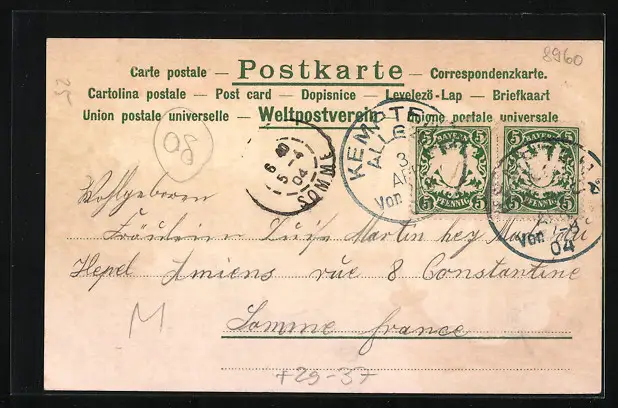 8960
Carte postale — Postkarte — Correspondenzkarte.
Cartolina postale — Post card — Dopisnice — Levelező-Lap — Briefkaart
Union postale universelle — Weltpostverein — Unione postale universale
25
08
KEMPTE
ALLE
3
AP
Von
BAYERN
5 5
5 5
PFENNIG
BAYERN
5 5
5 5
PFENNIG
Von
04
6
5 -4
04
SOMME
Wohlgeboren
Fräulein Luise Martin hey
Hepel Amiens rue 8 Constantine
M
Somme france
+29-37